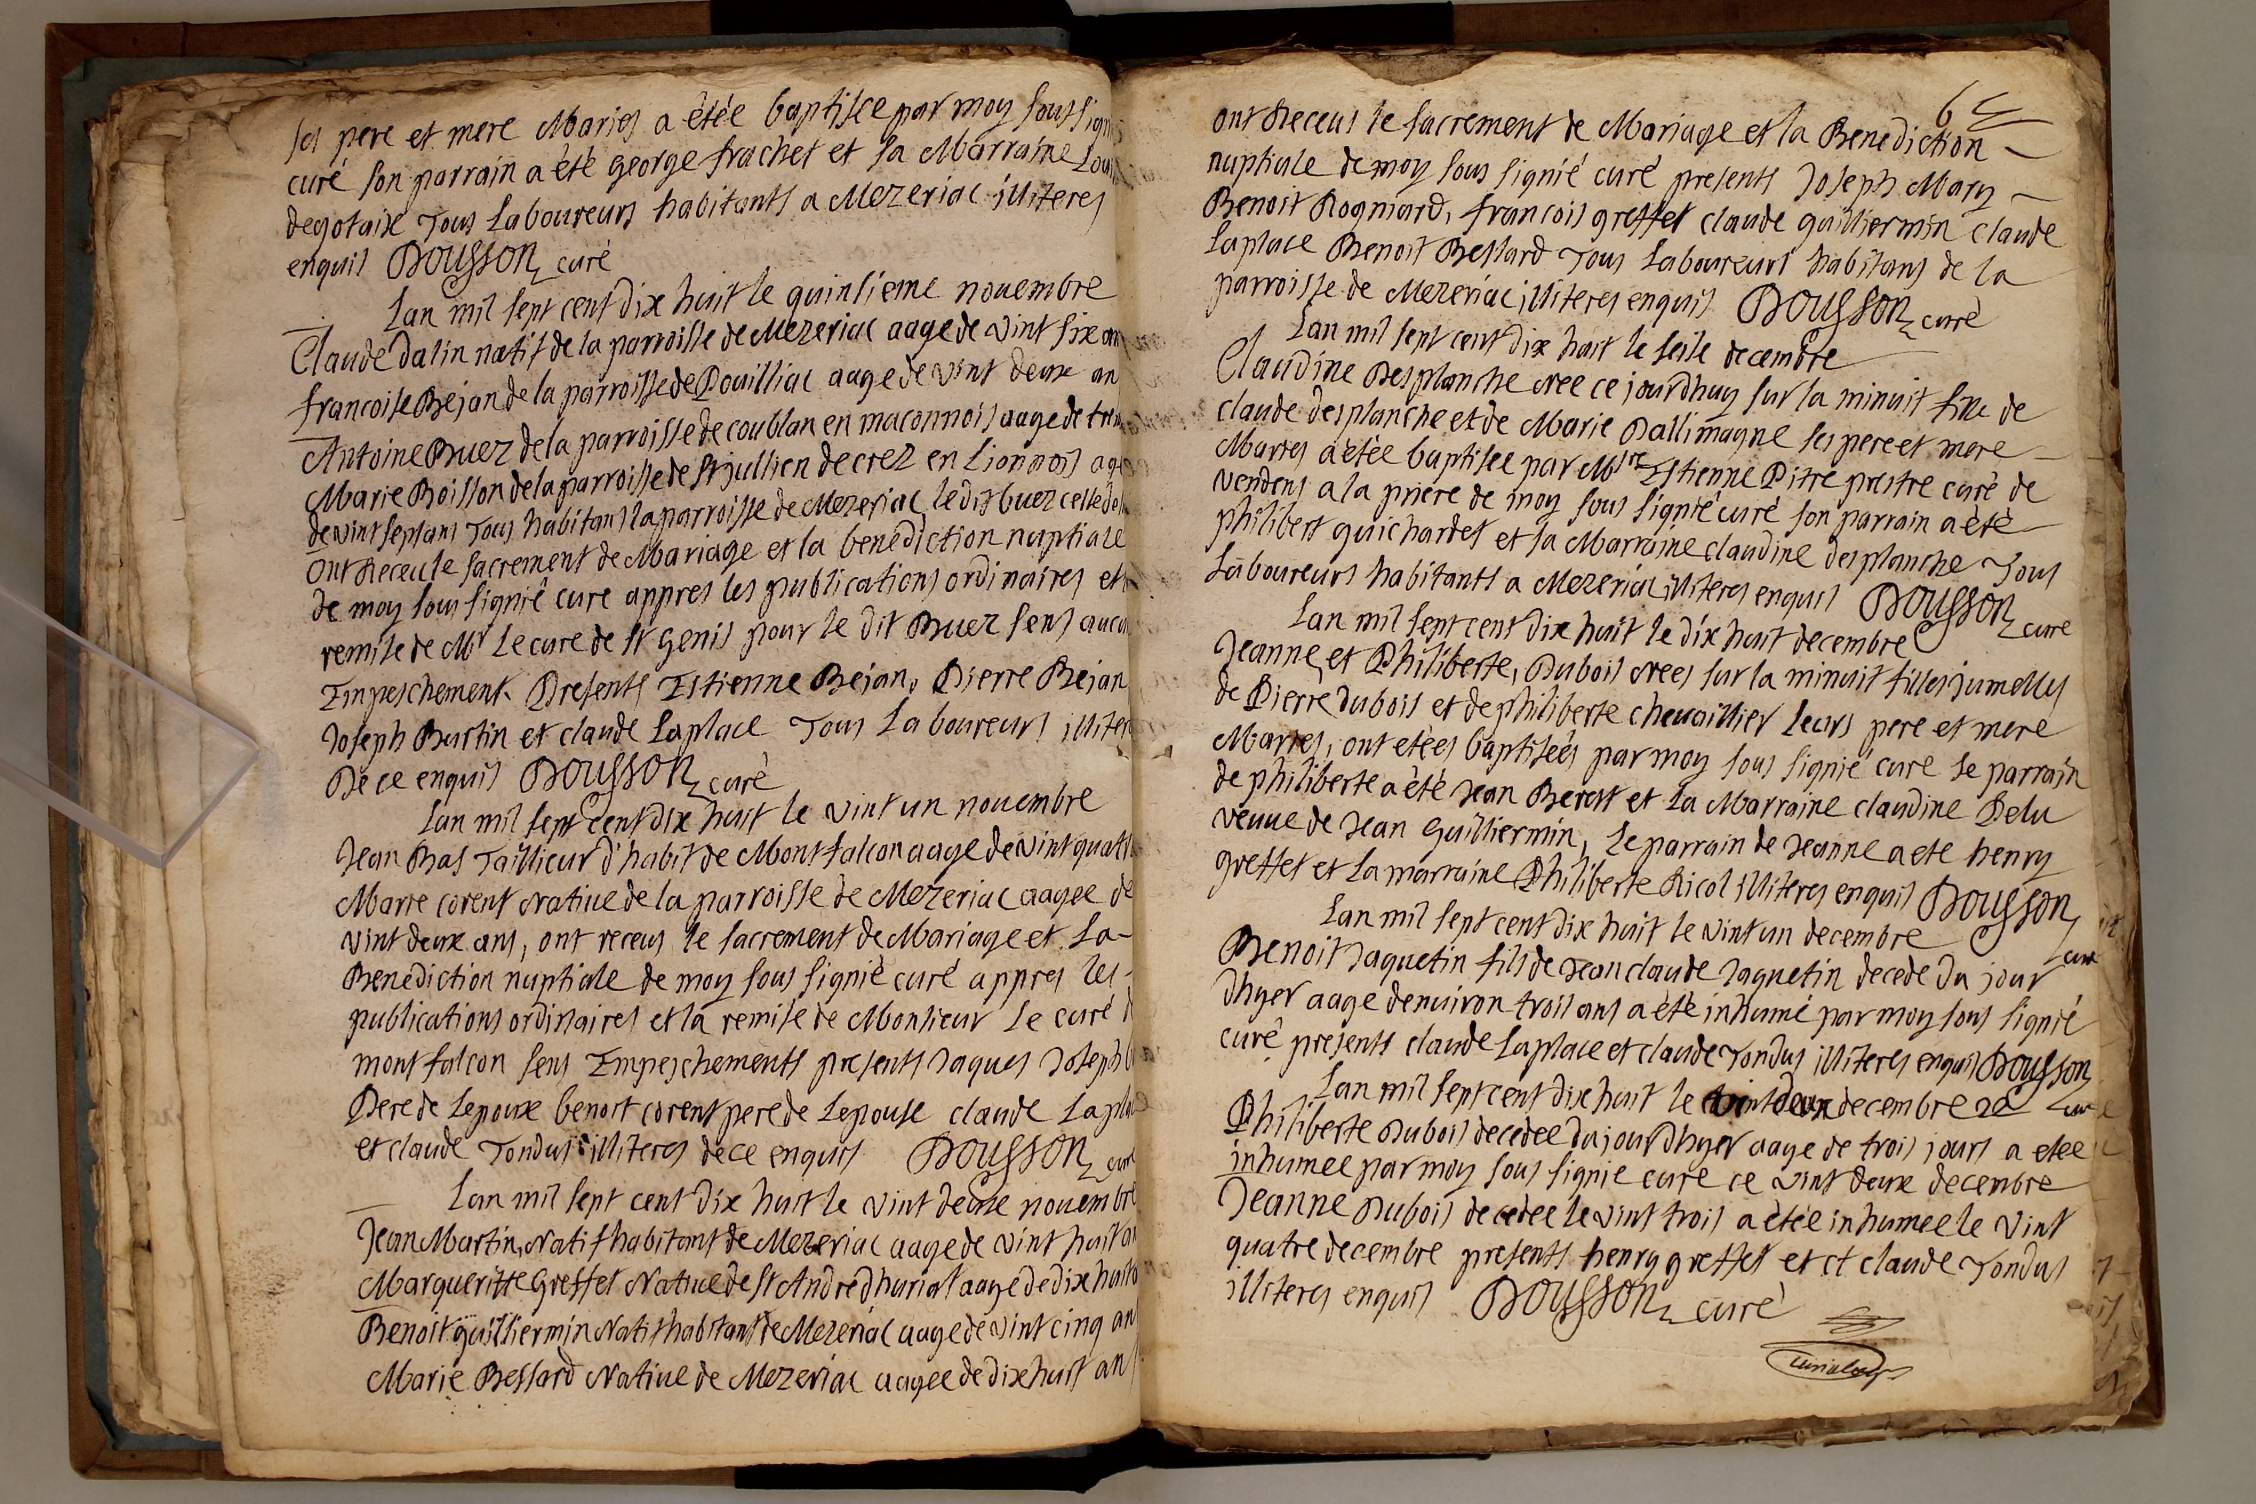 ses pere et mere Maries a étée baptisee par moy soussigné
curé son parrain a été george frachet et sa Marraine
degotaix Tous laboureurs habitants a Mezeriac illiteres
enquis Dousson curé
Lan mil sept cent dix huit le quinsieme nouembre
Claude Dalin natif de la parroisse de Mezeriac aage de vint six ans
francoise Bejan de la parroisse de Pouilliac aage de vint deux an
Antoine Buez de la parroisse de coublan en maconnois aage de
Marie Boisson de la parroisse de St jullien de crez en Lionnois
de vint sept ans Tous habitans la parroisse de Mezeriac le dit buez
Ont Receu le sacrement de Mariage et la benediction nuptiale
de moy sous signié cure appres les publications ordinaires et
remise de Mr Le cure de St Genis pour le dit Buez sens
Empeschement. Presents Estienne Bejan, Pierre Bejan
Joseph Burtin et claude Laplace Tous Laboureurs
De ce enquis Dousson curé
Lan mil sept cent dix huit le vint un nouembre
Jean Bas Taillieur d'habit de Montfalcon aage de vint
Marie corent Natiue de la parroisse de Mezeriac aagee de
vint deux ans, ont receus le sacrement de Mariage et La
Benediction nuptiale de moy sous signié curé appres les
publications ordinaires et la remise de Monsieur Le curé
montfalcon sens Empeschements presents Jaques Joseph
Pere de Lepoux benoit corent pere de Lepouse claude
et claude Tondus illiteres dece enquis Dousson curé
Lan mil sept cent dix huit le vint deux nouembre
Jean Martin, Natif habitant de Mezeriac aage de vint huit
Margueritte Greffet Natiue de St André dhuriat aage de
Benoit guilliermin Natif habitant de Mezeriac aage de vint cinq an
Marie Bessard Natiue de Mezeriac aagee de dix huit an
6
ont Receus le sacrement de Mariage et la Benediction
nuptiale de moy sous signié curé presents Joseph Mary
Benoit Rogniard, francois greffet claude guilliermin claude
Laplace Benoit Bessard Tous Laboureurs habitans de la
parroisse de Mezeriac illiteres enquis Dousson curé
Lan mil sept cent dix huit le seise decembre
Claudine Desplanche Nee ce jourdhuy sur la minuit fille de
claude desplanche et de Marie Dallimagne ses pere et mere
Maries a étée baptisee par Mre Estienne Pitre prestre curé de
vendens a la priere de moy sous signié curé son parrain a été
philibert guichardet et sa Marraine claudine desplanche Tous
Laboureurs habitants a Mezeriac illiteres enquis Dousson curé
Lan mil sept cent dix huit le dix huit decembre
Jeanne, et Philiberte, Dubois Nees sur la minuit filles jumelles
de Pierre Dubois et de philiberte cheuaillier leurs pere et mere
Maries, ont etées baptisées par moy sous signié curé Le parrain
de philiberte a été Jean Berert et La Marraine claudine Pelu
veuue de Jean Guilliermin, Le parrain de Jeanne a ete henry
greffet et La marraine Philiberte Ricol illiteres enquis Dousson curé
Lan mil sept cent dix huit le vint un decembre
Benoit Jaquetin fils de Jean claude Jaquetin decede du jour
dhyer aage denuiron trois ans a été inhumé par moy sous signié
curé presents claude Laplace et claude Tondus illiteres enquis Dousson curé
Lan mil sept cent dix huit le vint deux decembre 22
Philiberte Dubois decedee du jour dhyer aage de trois jours a etee
inhumee par moy sous signie cure ce vint deux decembre
Jeanne Dubois decedee le vint trois a étée inhumee le vint
quatre decembre presents henry greffet et ct claude Tondus
illiteres enquis Dousson curé